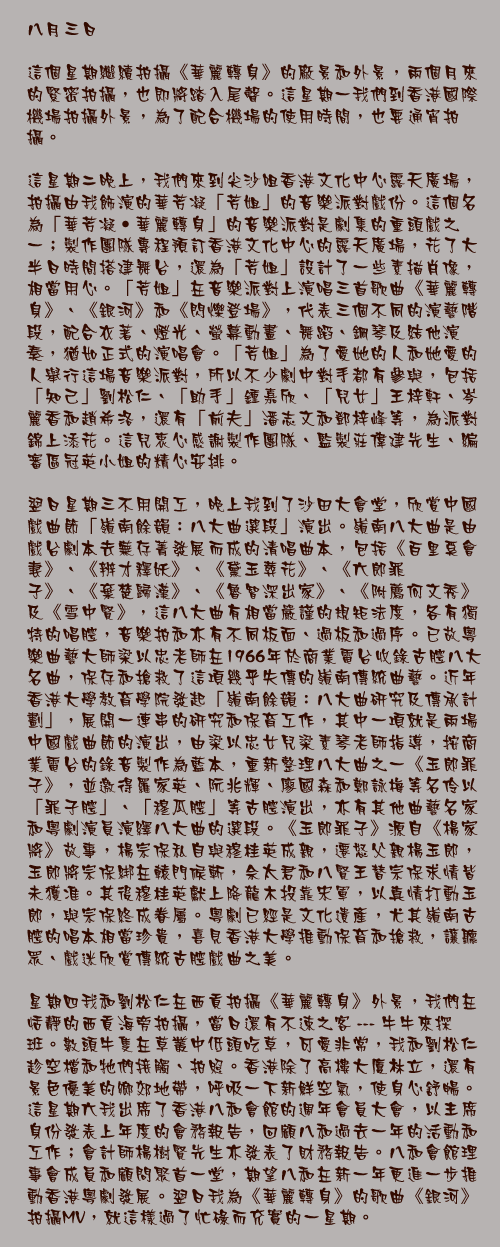 八月三日
這個星期繼續拍攝《華麗轉身》的廠景和外景，兩個月來
的緊密拍攝，也即將踏入尾聲。這星期一我們到香港國際
機場拍攝外景，為了配合機場的使用時間，也要通宵拍
攝。
這星期二晚上，我們來到尖沙咀香港文化中心露天廣場，
拍攝由我飾演的華芳凝「芳姐」的音樂派對戲份。這個名
為「華芳凝•華麗轉身」的音樂派對是劇集的重頭戲之
一；製作團隊專程預訂香港文化中心的露天廣場，花了大
半日時間搭建舞台，還為「芳姐」設計了一些素描肖像，
相當用心。「芳姐」在音樂派對上演唱三首歌曲《華麗轉
身》、《銀河》和《閃爍登場》，代表三個不同的演藝階
段，配合衣著、燈光、螢幕動畫、舞蹈、鋼琴及結他演
奏，猶如正式的演唱會。「芳姐」為了愛她的人和她愛的
人舉行這場音樂派對，所以不少劇中對手都有參與，包括
「知己」劉松仁、「助手」鍾嘉欣、「兒女」王梓軒、岑
麗香和趙希洛，還有「前夫」潘志文和鄧梓峰等，為派對
錦上添花。這兒衷心感謝製作團隊、監製莊偉建先生、編
審區冠英小姐的精心安排。
翌日星期三不用開工，晚上我到了沙田大會堂，欣賞中國
戲曲節「嶺南餘韻：八大曲選段」演出。嶺南八大曲是由
戲台劇本去蕪存菁發展而成的清唱曲本，包括《百里奚會
妻》、《辨才釋妖》、《黛玉葬花》、《六郎罪
子》、《棄楚歸漢》、《魯智深出家》、《附薦何文秀》
及《雪中賢》，這八大曲有相當嚴謹的規矩法度，各有獨
特的唱腔，音樂拍和亦有不同板面、過板和過序。已故粵
樂曲藝大師梁以忠老師在1966年於商業電台收錄古腔八大
名曲，保存和搶救了這項幾乎失傳的嶺南傳統曲藝。近年
香港大學教育學院發起「嶺南餘韻：八大曲研究及傳承計
劃」，展開一連串的研究和保育工作，其中一項就是兩場
中國戲曲節的演出，由梁以忠女兒梁素琴老師指導，按商
業電台的錄音製作為藍本，重新整理八大曲之一《玉郎罪
子》，並邀得羅家英、阮兆輝、廖國森和鄭詠梅等名伶以
「罪子腔」、「穆瓜腔」等古腔演出，亦有其他曲藝名家
和粵劇演員演繹八大曲的選段。《玉郎罪子》源自《楊家
將》故事，楊宗保私自與穆桂英成親，還怒父親楊玉郎，
玉郎將宗保綁在轅門候斬，佘太君和八賢王替宗保求情皆
未獲准。其後穆桂英獻上降龍木投靠宋軍，以真情打動玉
郎，與宗保終成眷屬。粵劇已經是文化遺產，尤其嶺南古
腔的唱本相當珍貴，喜見香港大學推動保育和搶救，讓聽
眾、戲迷欣賞傳統古腔戲曲之美。
星期四我和劉松仁在西貢拍攝《華麗轉身》外景，我們在
恬靜的西貢海旁拍攝，當日還有不速之客 --- 牛牛來探
班。數頭牛隻在草叢中低頭吃草，可愛非常，我和劉松仁
趁空檔和牠們接觸、拍照。香港除了高樓大廈林立，還有
景色優美的鄉郊地帶，呼吸一下新鮮空氣，使身心舒暢。
這星期六我出席了香港八和會館的週年會員大會，以主席
身份發表上年度的會務報告，回顧八和過去一年的活動和
工作；會計師楊樹賢先生亦發表了財務報告。八和會館理
事會成員和顧問聚首一堂，期望八和在新一年更進一步推
動香港粵劇發展。翌日我為《華麗轉身》的歌曲《銀河》
拍攝MV，就這樣過了忙碌而充實的一星期。